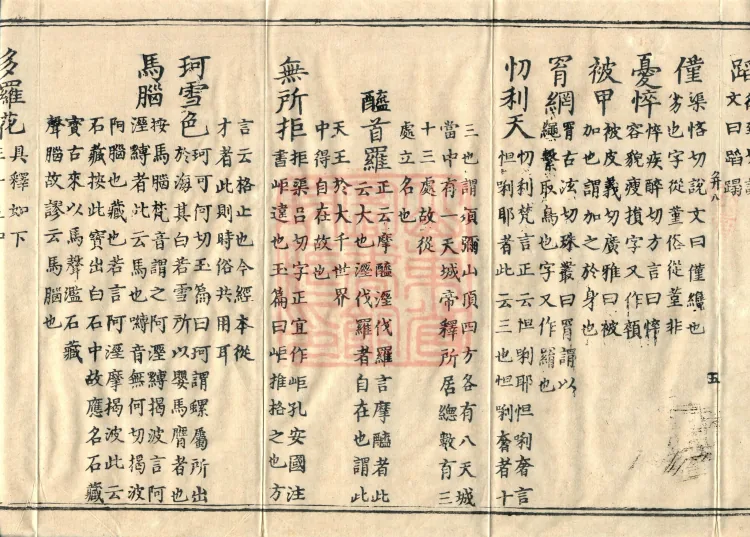 文曰蹈蹋
五
僅渠恡切說文曰僅纔也
劣也字從堇俗從菫非
憂悴悴疾醉切方言曰悴
容貌瘦損字又作顇
被甲被皮義切廣雅曰被
加也謂加之於身也
罥網罥古泫切珠叢曰罥謂以
繩繫取鳥也字又作羂也
忉利天忉利梵言正云怛唎耶怛唎奢言
怛唎耶者此云三也怛唎奢者十
三也謂須彌山頂四方各有八天城
當中有一天城帝釋所居總數有三
十三處故從
處立名也
醯首羅正云摩醯溼伐羅言摩醯者此
云大也溼伐羅者自在也謂此
天王於大千世界
中得自在故也
無所拒拒渠呂切字正宜作岠孔安國注
書岠違也玉篇曰岠推格之也方
言云格止也今經本從
才者此則時俗共用耳
珂雪色珂可何切玉篇曰珂謂螺屬所出
於海其白若雪所以嬰馬膺者也
馬腦按馬腦梵音謂之阿溼縛揭波言阿
溼縛者此云馬也音無何切揭波
腦也藏也若言阿溼摩揭波此云
石藏按此寶出白石中故應名石藏
寶古來以馬聲濫石藏
聲腦故謬云馬腦也
多羅花具釋如下